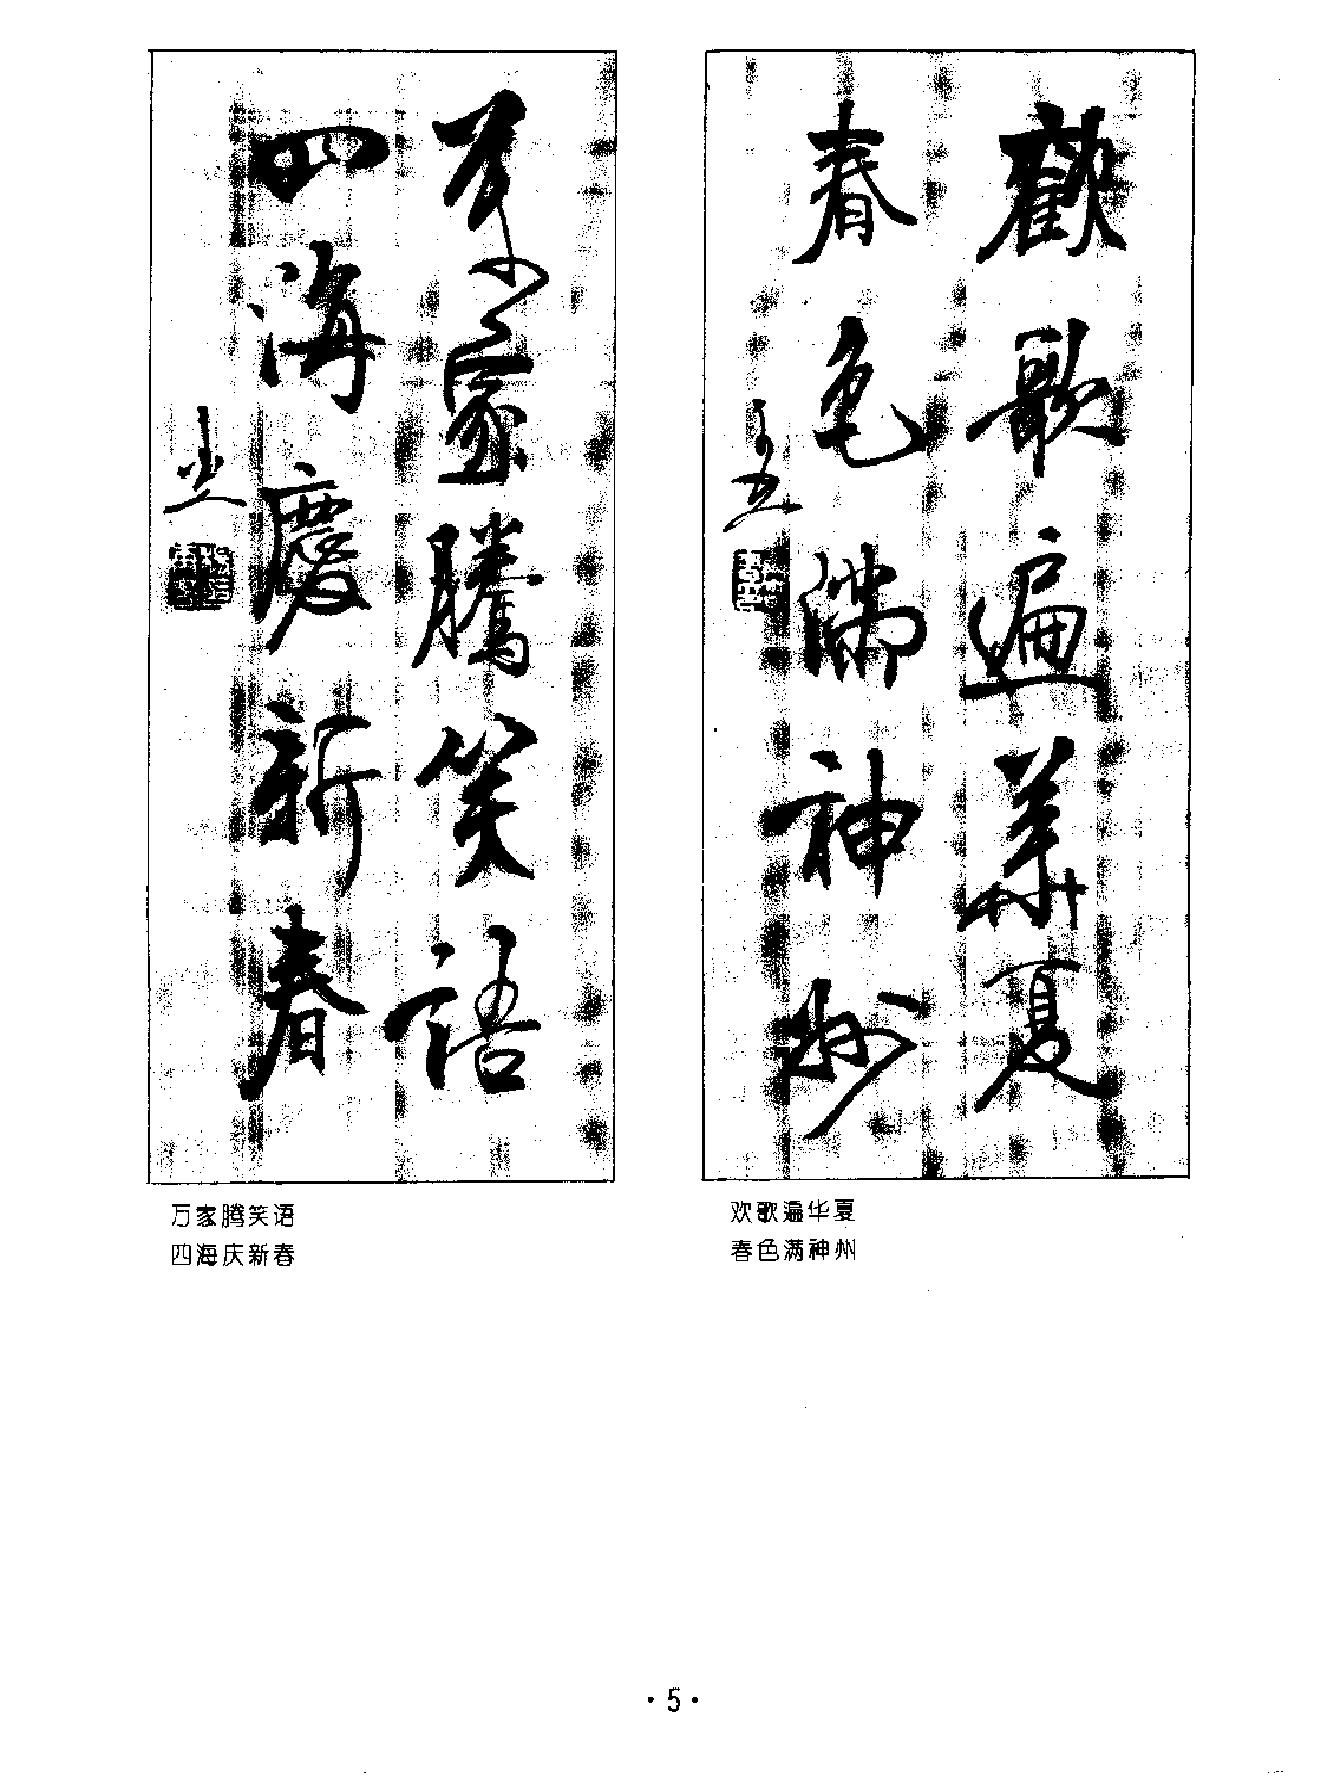 歡歌遍華夏
春色滿神州
萬家騰笑語
四海慶新春
万家腾笑语
四海庆新春
欢歌遍华夏
春色满神州
·5·